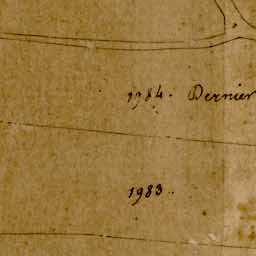 1984. Dernier
1983.